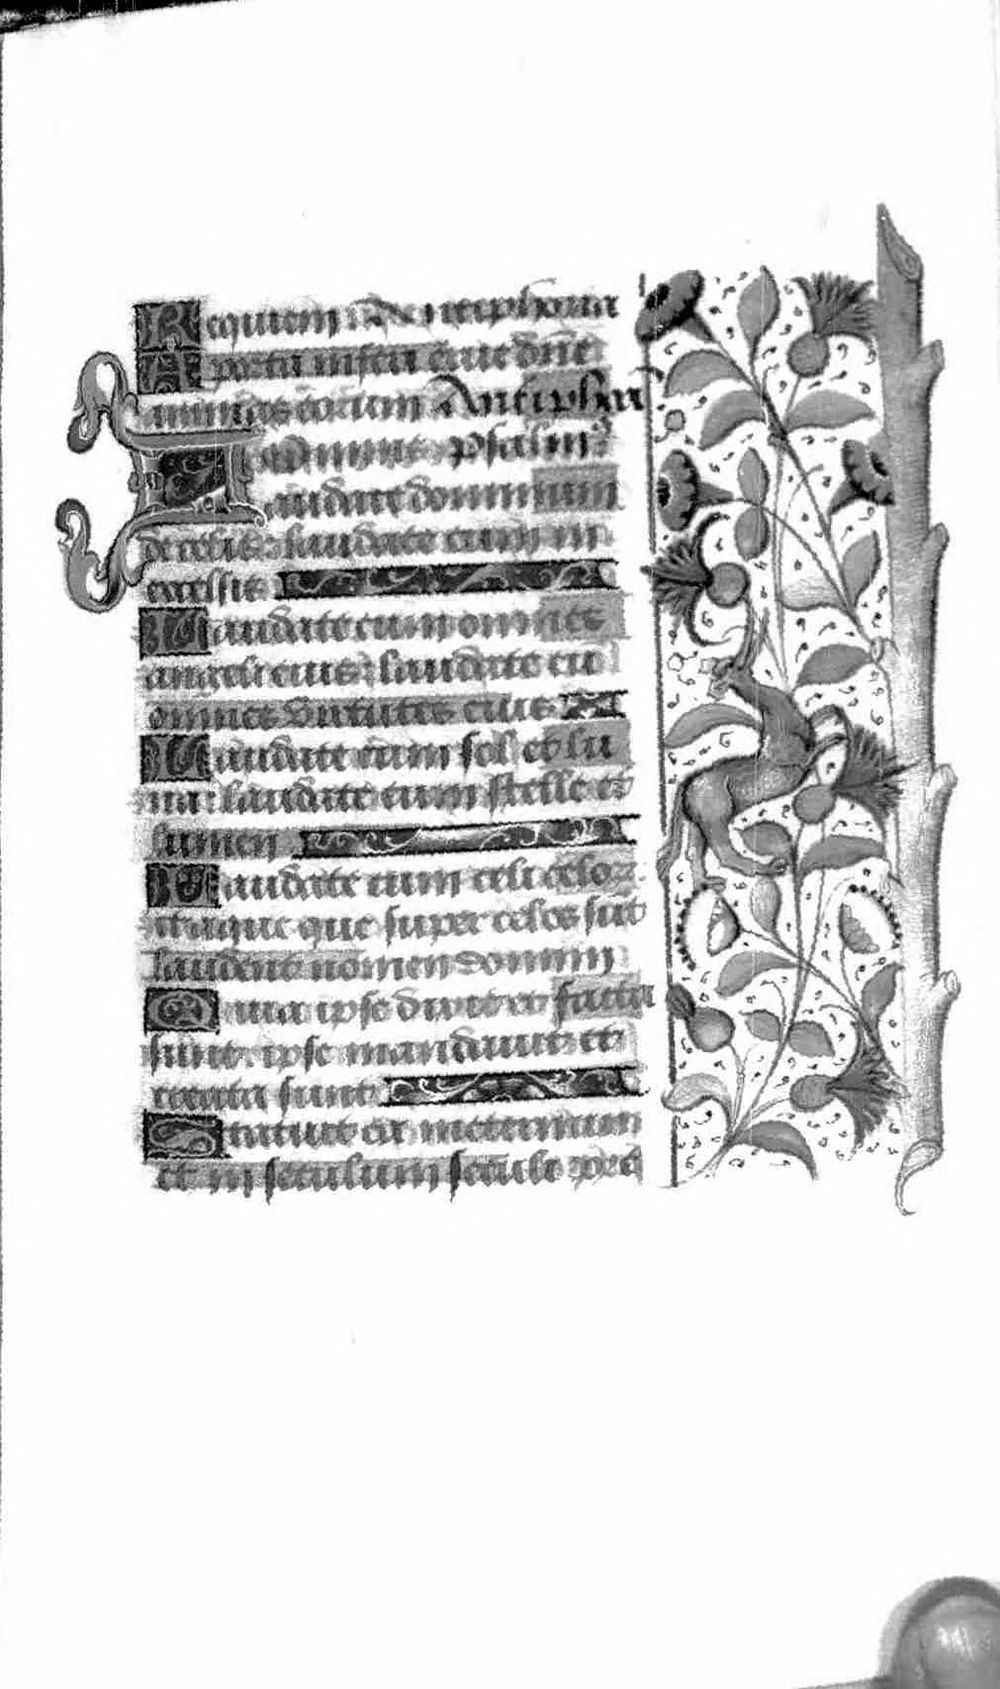 Requiem Antiphona
A porta inferi erue dñe
animas eorum Antiphona
Omnis psalmꝰ
Laudate dominum
de celis: laudate eum in
excelsis
Laudate eum omnes
angeli eius: laudate eū
omnes virtutes eius
Laudate eum sol et lu
na: laudate eum stelle et
lumen
Laudate eum celi celoꝝ
atque que super celos sūt
laudent nomen domini
Quia ipse dixit et facta
sunt: ipse mandauit et
creata sunt
Statuit ea in eternum
et in seculum seculi pre